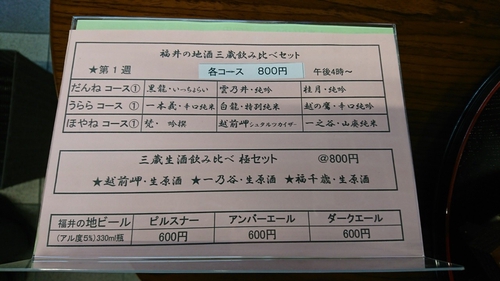 福井の地酒三蔵飲み比べセット
★第1週 各コース 800円 午後4時～
だんねコース① 黒龍・いっちょらい 雲乃井・純吟 桂月・純吟
うららコース① 一本義・辛口純米 白龍・特別純米 越の鷹・辛口純吟
ほやねコース① 梵・吟撰 越前岬・シュタルクカイザー 一乃谷・山廃純米
三蔵生酒飲み比べ 極セット @800円
★越前岬・生原酒 ★一乃谷・生原酒 ★福千歳・生原酒
福井の地ビール ピルスナー アンバーエール ダークエール
(アル度5%)330ml瓶 600円 600円 600円